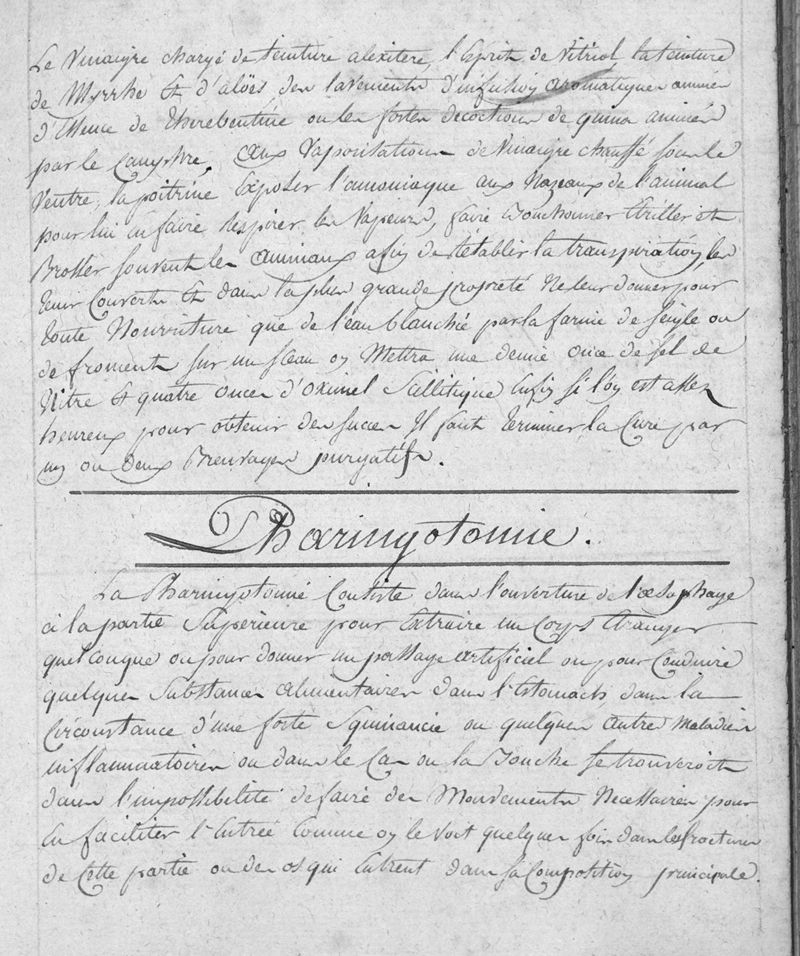 Le Vinaigre chargé de teinture alexitere, l'Esprit de Vitriol la teinture
de Myrrhe et d'aloës des lavements d'infusion aromatiques animés
d'Essence de Therebentine ou les fortes decoctions de quina animés
par le Camphre, aux Vaporisations de Vinaigre chauffé sous le
Ventre, la poitrine Exposer l'amoniaque aux Nazeaux de l'animal
pour lui en faire Respirer les Vapeurs, faire Bouchonner Etriller et
Brosser souvent les animaux afin de Rétablir la transpiration, les
tenir Couverts et dans la plus grande propreté Ne leur donner pour
toute Nourriture que de l'eau blanchie par la farine de seigle ou
de froment sur un seau on Mettra une demie once de sel de
Nitre et quatre onces d'oximel Sillitique Enfin si l'on est assez
heureux pour obtenir des succes Il faut terminer la Cure par
un ou deux Breuvages purgatifs.
Pharingotomie.
La Pharingotomie Consiste dans l'ouverture de l'œsophage
à la partie Superieure pour Extraire un Corps Etranger
quelconque ou pour donner un passage artificiel ou pour Conduire
quelques Substances alimentaires dans l'Estomach dans la
Circonstance d'une forte Squinancie ou quelques autre Maladies
inflammatoires ou dans le Cas ou la Bouche se trouveroit
dans l'impossibilité de faire des Mouvements Necessaires pour
En faciliter l'Entrée Comme on le voit quelques fois dans les fractures
de Cette partie ou des os qui Entrent dans sa Composition principale.